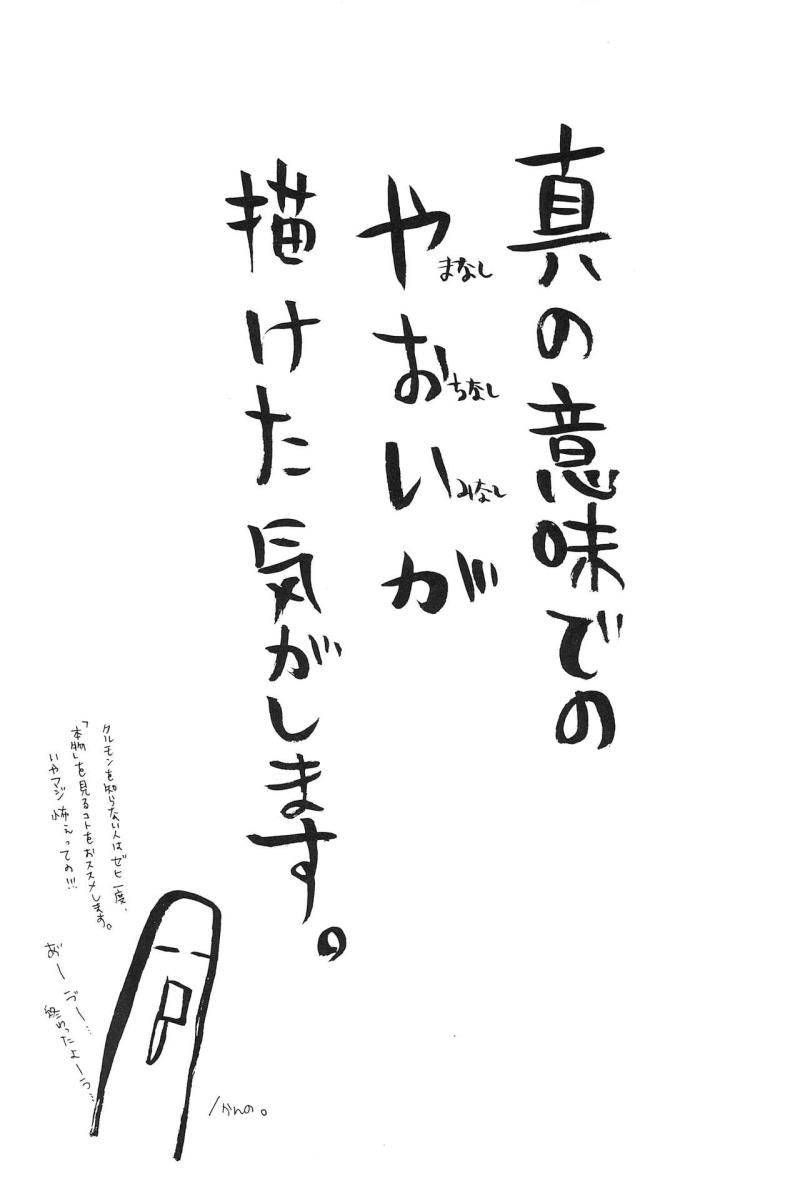 真の意味での
やまなし
おちなし
いみなしが
描けた気がします。
クルモンを知らない人はぜヒ一度、
「本物」を見るコトをおススメします。
いやマジ怖えっての!!!
おーづー…
終わったよーう…
/かんの。